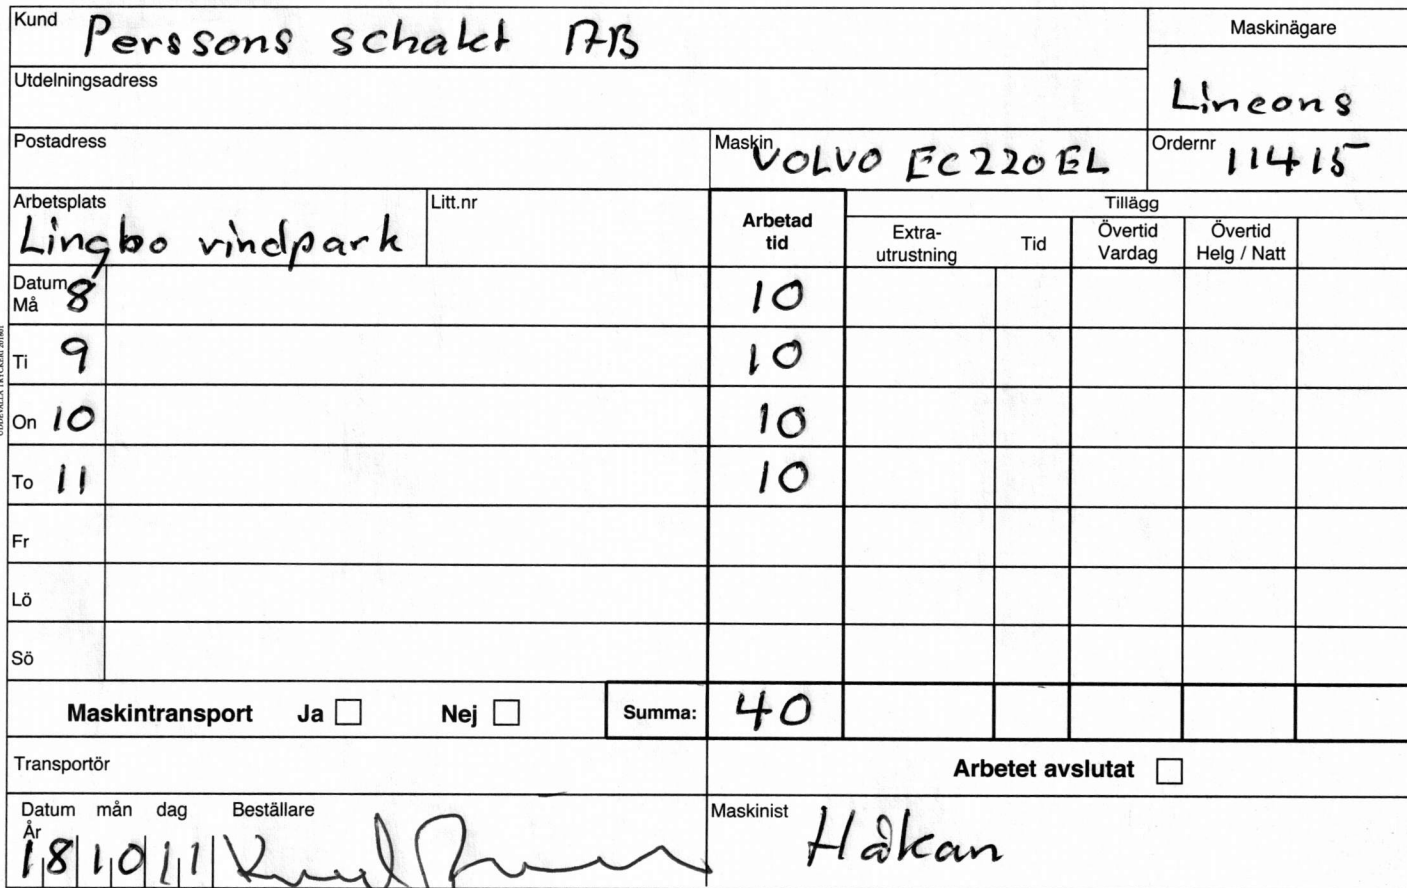 Kund Perssons schakt AB
Maskinägare
Utdelningsadress
Lincons
Postadress
Maskin VOLVO EC220EL
Ordernr 11415
Arbetsplats
Lingbo vindpark
Litt.nr
Arbetad
tid
Tillägg
Extra-
utrustning
Tid
Övertid
Vardag
Övertid
Helg / Natt
Datum
Må 8 10
Ti 9 10
On 10 10
To 11 10
Fr
Lö
Sö
Maskintransport Ja Nej Summa: 40
Transportör
Arbetet avslutat
Datum mån dag Beställare
År
181011
Maskinist Håkan